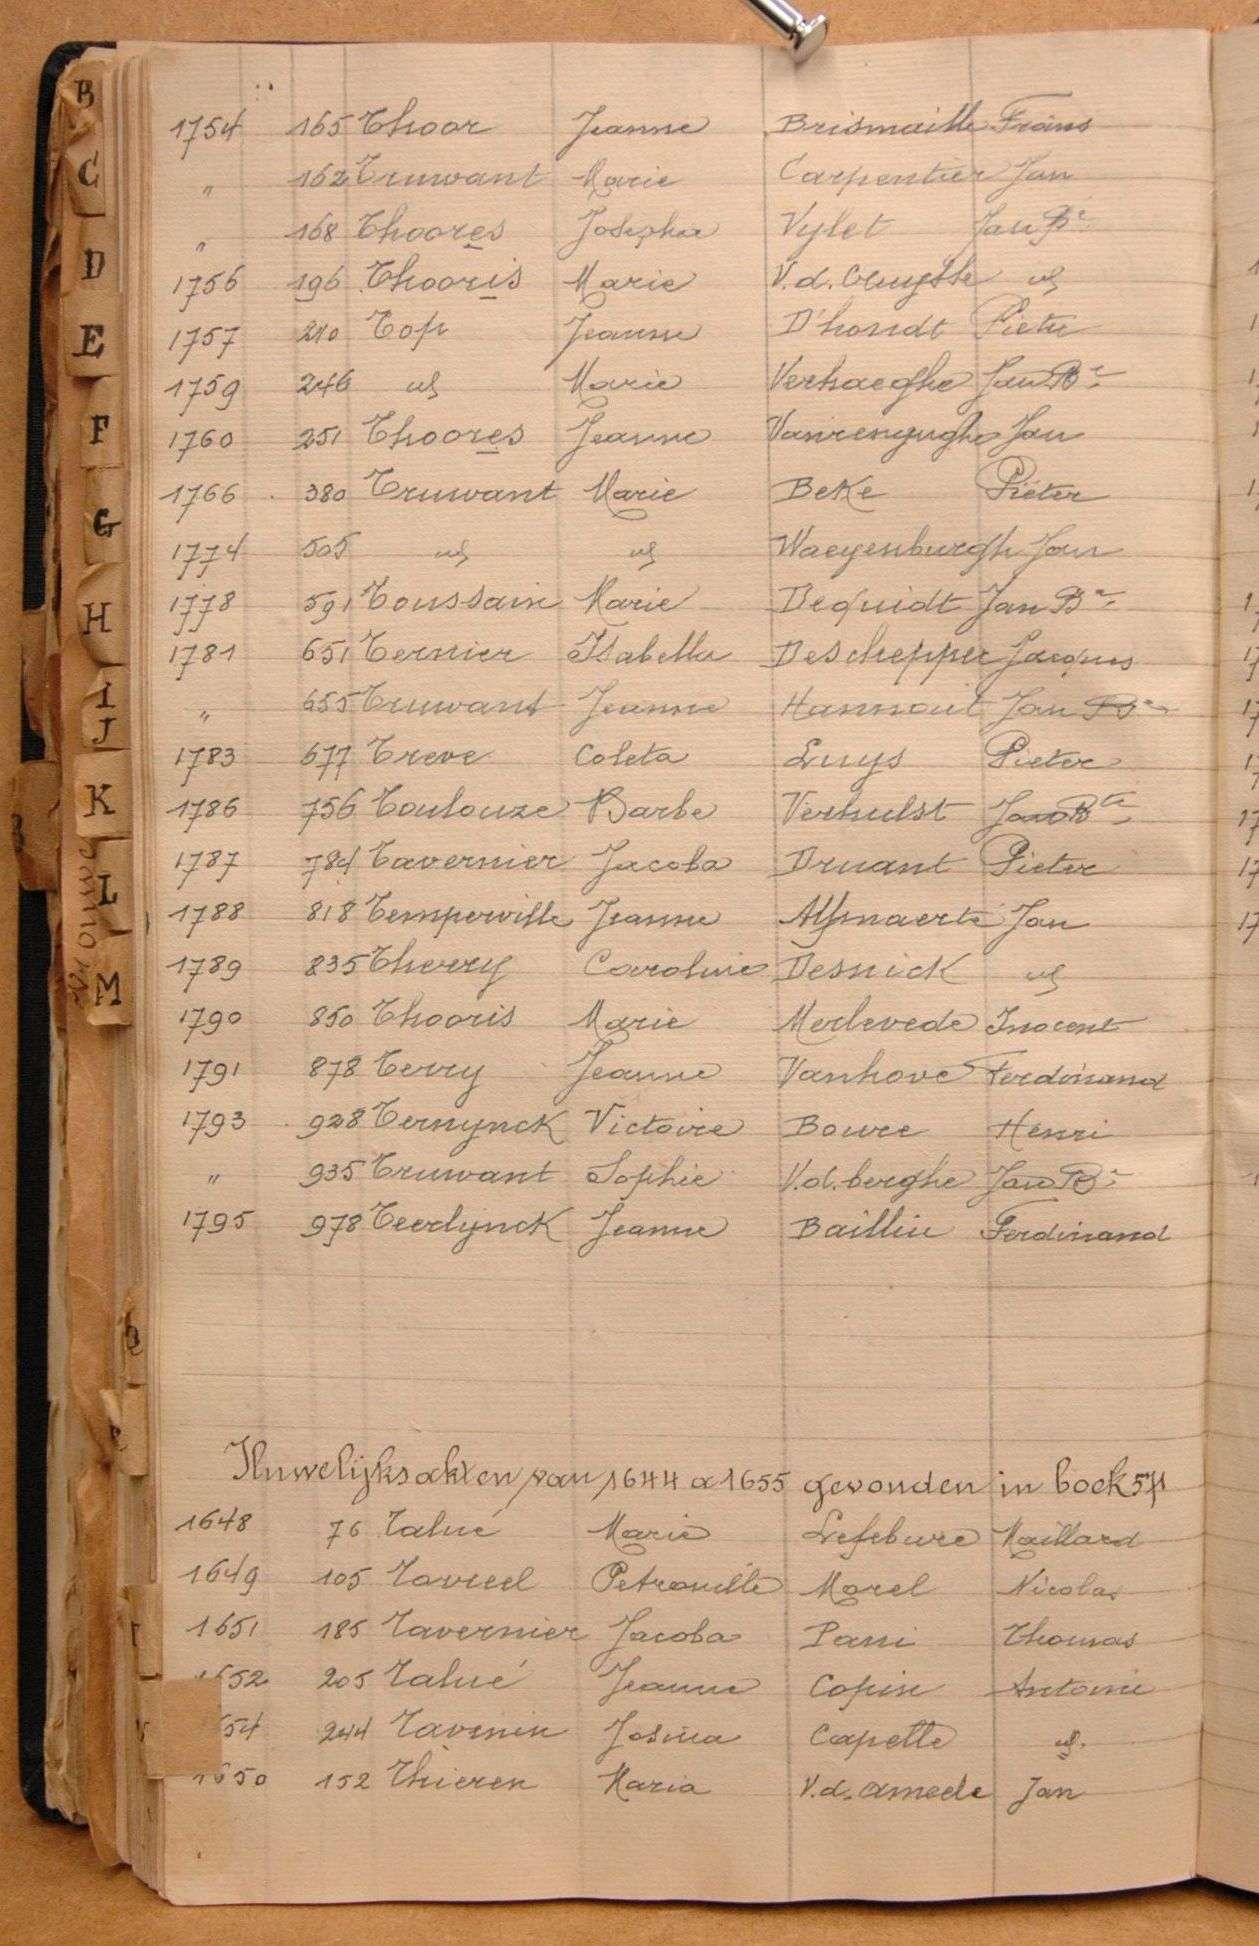 B
C
D
E
F
G
H
I
J
K
L
M
1754 165 Thoor Jeanne Brismaille Frans
" 162 Truwant Marie Carpentier Jan
" 168 Thoores Josepha Vylet Jan Bte
1756 196 Thooris Marie V.d. Cruysse id
1757 210 Top Jeanne D'hondt Pieter
1759 246 id Marie Verhaeghe Jan Bte
1760 251 Thoores Jeanne Jan
1766 380 Truwant Marie Beke Pieter
1774 505 id id Waeyenburgh Jan
1778 591 Toussain Marie Dequidt Jan Bte
1781 651 Ternier Isabella Deschepper Jacques
" 655 Truwant Jeanne Hannout Jan Bte
1783 677 Treve Coleta Luys Pieter
1786 756 Toulouze Barbe Verhulst Jan Bte
1787 784 Tavernier Jacoba Druant Pieter
1788 818 Temperville Jeanne Jan
1789 835 Therry Caroline Desnick id
1790 850 Thooris Marie Merlevede Inocent
1791 878 Terry Jeanne Vanhove Ferdinand
1793 928 Ternynck Victoire Boure Henri
" 935 Truwant Sophie V.d. berghe Jan Bte
1795 978 Teerlynck Jeanne Baillin Ferdinand
Huwelijksakten van 1644 a 1655 gevonden in boek 57
1648 76 Talué Marie Lefebure Maillard
1649 105 Taveel Petronille Morel Nicolas
1651 185 Tavernier Jacoba Pani Thomas
1652 205 Talué Jeanne Copin Antoine
54 244 Tavenin Josina Capelle id.
1650 152 Thieren Maria V.d. ameele Jan